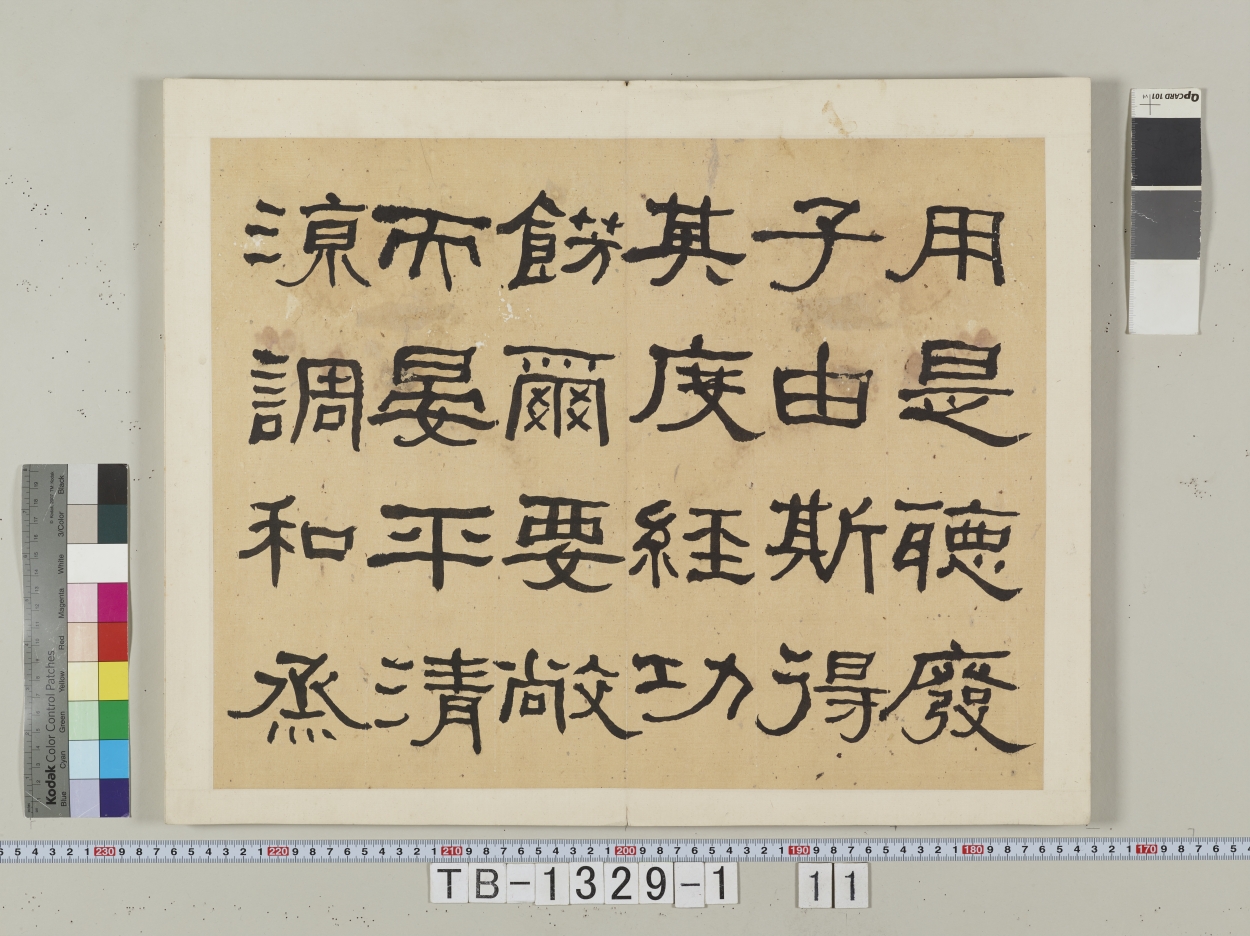 用是聽廢
子由斯得
其度經功
餝爾要敞
而晏平清
涼調和烝
QpCARD 101
Kodak Color Control Patches
Blue Cyan Green Yellow Red Magenta White 3/Color Black
230 220 210 200 190 180 170
TB-1329-1 11